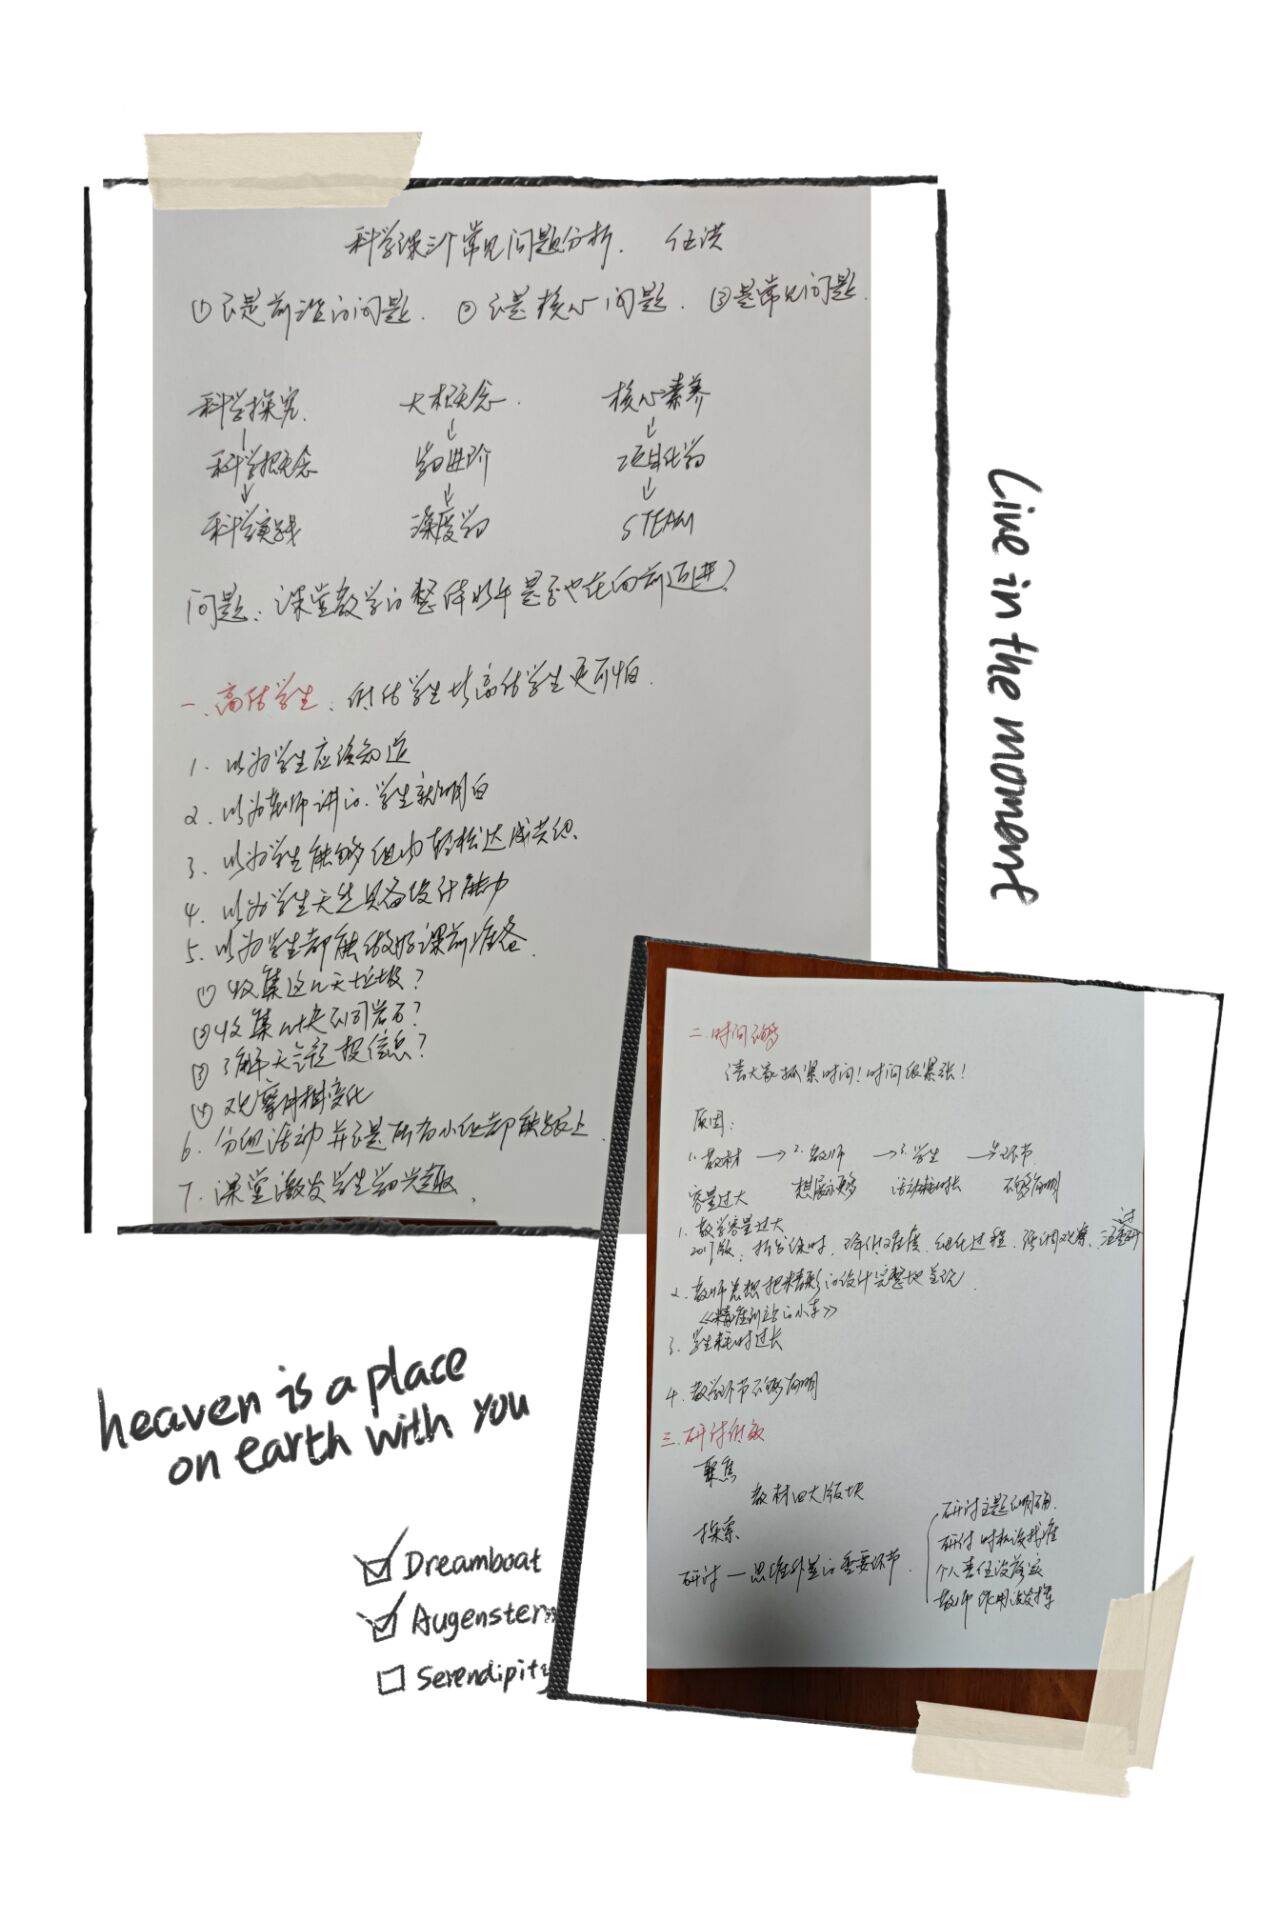 科学课三个常见问题分析. 任洪
①不是前沿的问题. ②不是核心问题. ③是常见问题.
科学探究. 大概念. 核心素养
↓ ↓ ↓
科学概念 学习进阶 项目化学习
↓ ↓ ↓
科学实践 深度学习 STEAM
问题:课堂教学的整体水平是否也在向前迈进?
一.高估学生. 低估学生比高估学生更可怕.
1. 以为学生应该知道
2. 以为老师讲的.学生就明白
3. 以为学生能够组内轻松达成共识.
4. 以为学生天生具备设计能力
5. 以为学生都能做好课前准备.
①收集这几天垃圾?
②收集几块不同岩石?
③了解天气预报信息?
④观察树变化
6. 分组活动并不是所有小组都能跟上.
7. 课堂激发学生学习兴趣.
Live in the moment
二.时间不够
请大家抓紧时间!时间很紧张!
原因:
1. 教材 → 2. 教师 → 3. 学生 → 4. 环节
容量过大 想展示更多 活动耗时长 不够简明
1. 教学容量过大
2017版. 拆分课时. 降低难度. 细化过程. 强调观察. 注重研讨
2. 教师总想把精彩的设计完整地呈现.
《精准到站的小车》
3. 学生耗时过长
4. 教学环节不够简明
三.研讨低效
聚焦
教材四大版块
探索
研讨—思维外显的重要环节.
研讨主题不明确.
研讨时机没找准
个人责任没落实
教师作用没发挥
heaven is a place
on earth with you
Dreamboat
Augenstern
Serendipity